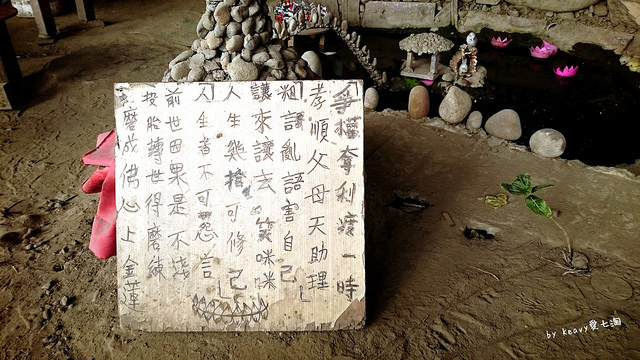 爭權奪利渡一時
孝順父母天助理
粗語亂語害自己」
讓來讓去笑咪咪
人生 可修己」
人生者不可怨言
前世因果是不淺
投胎轉世得磨練
磨成佛心上金蓮
by keavy愛七淘